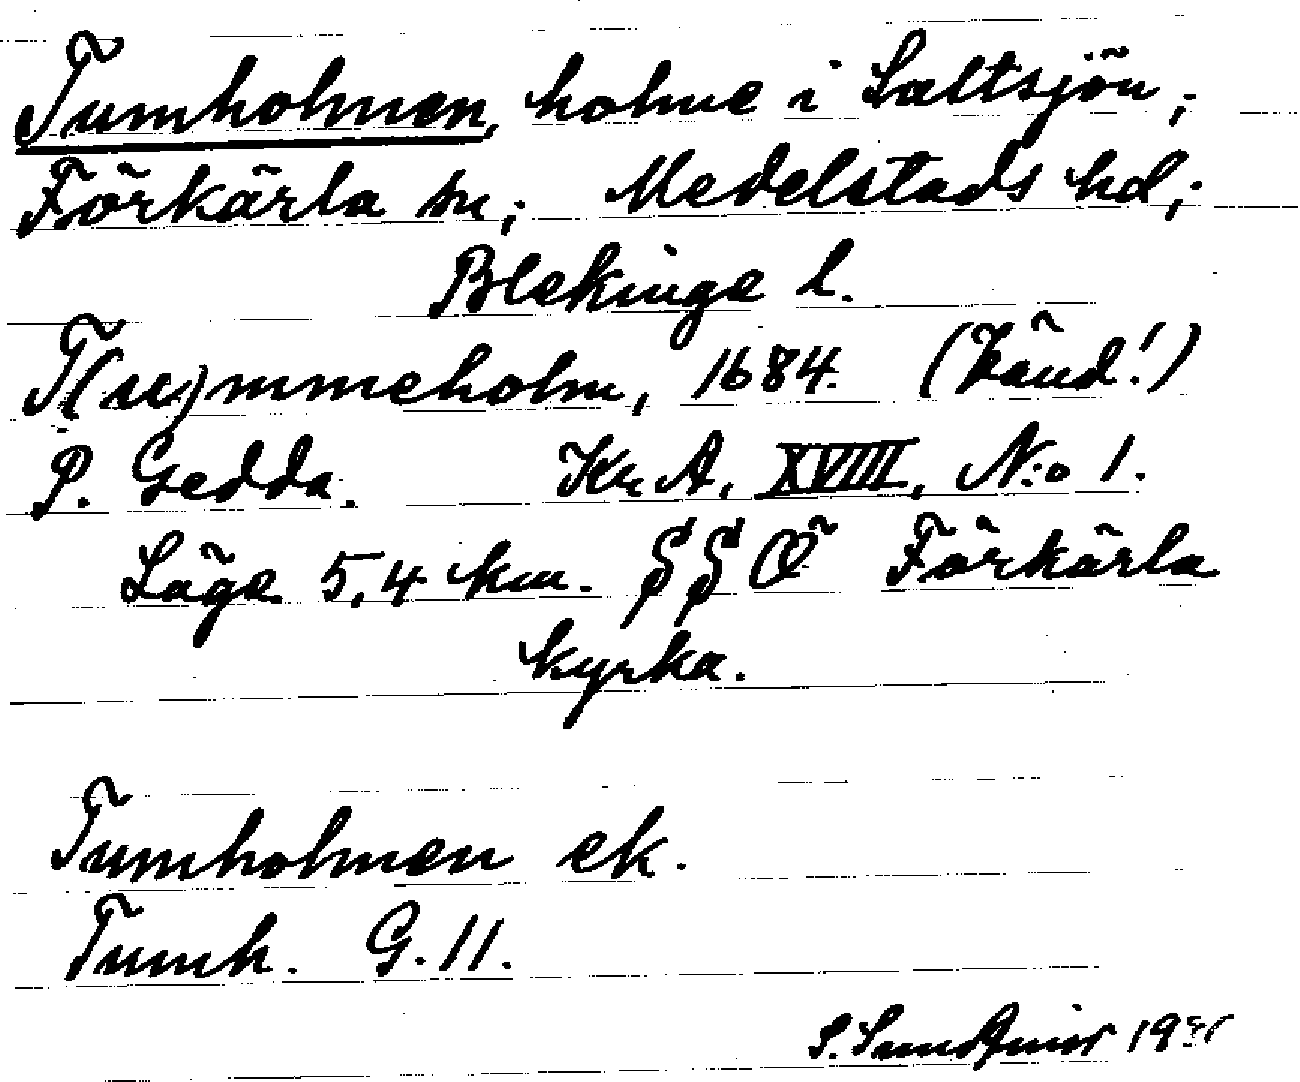 Tumholmen, holme i Saltsjön;
Förkärla sn; Medelstads hd;
Blekinge l.
T(u)mmeholm, 1684. (Känd!)
P. Gedda. Kr. A, XVIII, N:o 1.
Läge 5,4 km. SSÖ Förkärla
kyrka.
Tumholmen ek.
Tumh. G. 11.
S. Sundquist